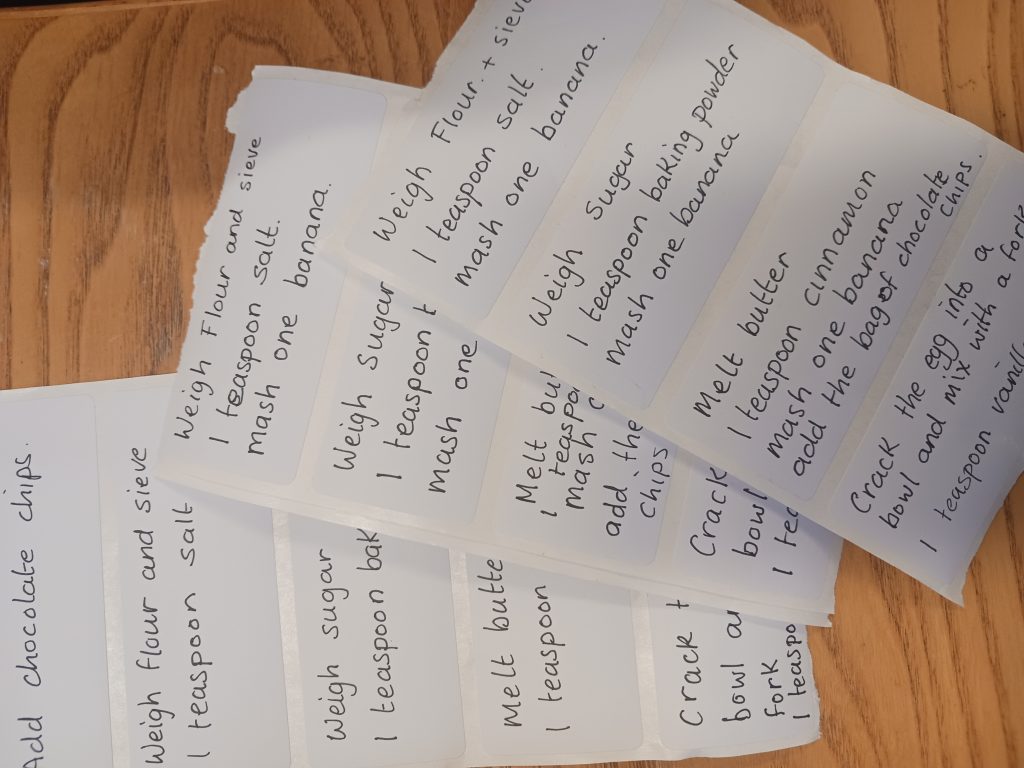 Add chocolate chips.
Weigh flour and sieve
1 teaspoon salt
Weigh sugar
1 teaspoon
Melt
1 teaspoon
Crack
bowl
fork
1
Weigh Flour and sieve
1 teaspoon salt.
mash one banana.
Weigh Sugar
1 teaspoon
mash one
1 Melt
mash
add the
chips
Crack
bowl
1
Weigh Flour + sieve
1 teaspoon salt.
mash one banana.
Weigh Sugar
1 teaspoon baking powder
mash one banana
Melt butter
1 teaspoon cinnamon
mash one banana
add the bag of chocolate
chips.
Crack the egg into a
bowl and mix with a fork
1 teaspoon